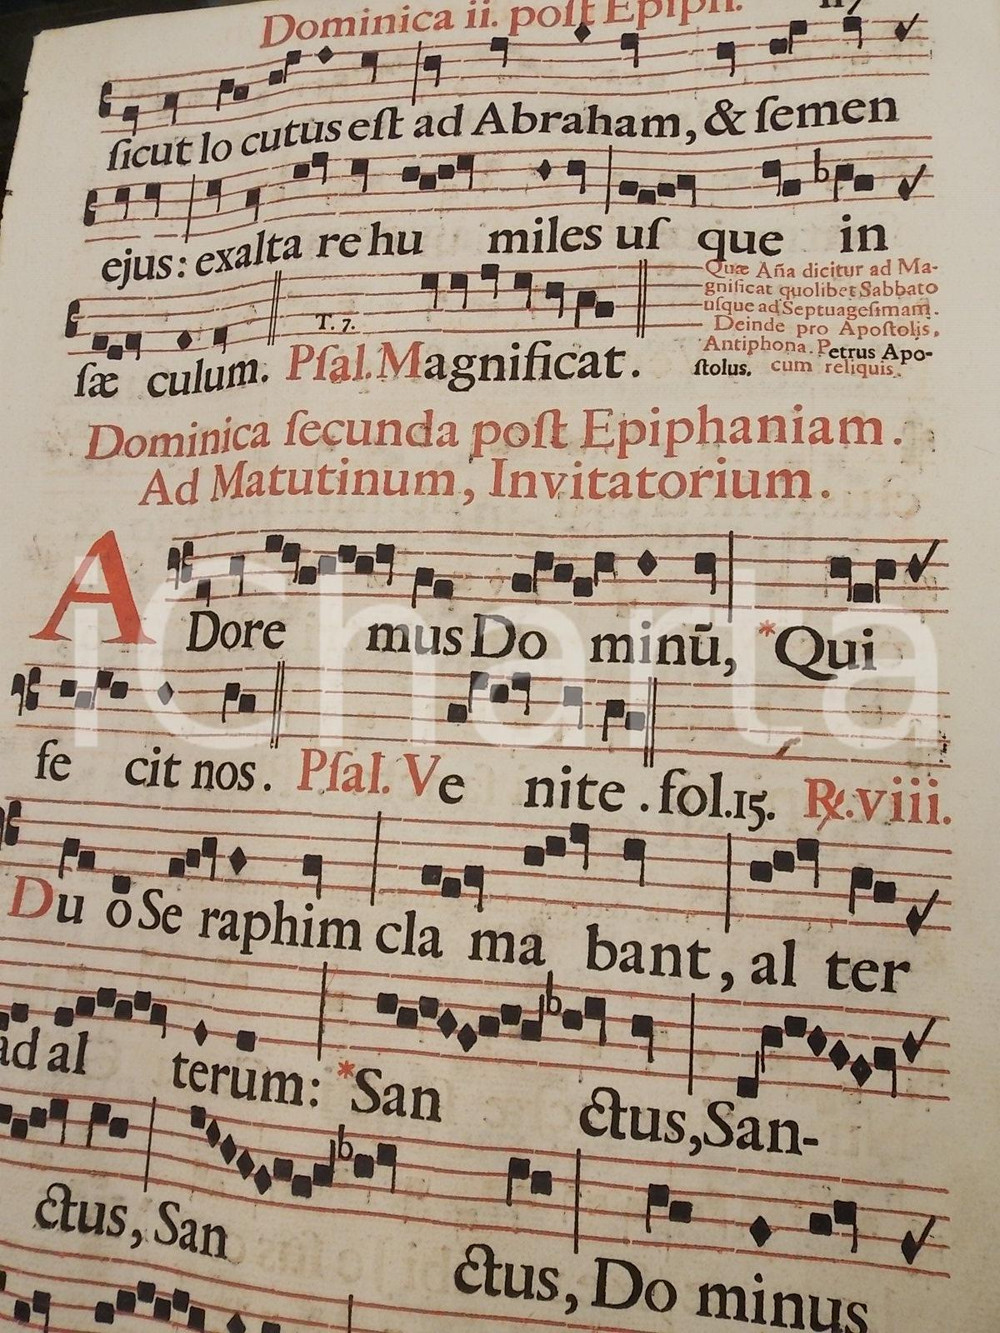 Dominica ii. poſt Epiph.
ſicut lo cutus eſt ad Abraham, & ſemen
ejus: exalta re hu miles uſ que in
Quæ Aña dicitur ad Ma-
gnificat quolibet Sabbato
uſque ad Septuageſimam.
Deinde pro Apoſtolis,
Antiphona. Petrus Apo-
ſtolus. cum reliquis.
T. 7.
ſæ culum. Pſal. Magnificat.
Dominica ſecunda poſt Epiphaniam.
Ad Matutinum, Invitatorium.
ADore mus Do minū, *Qui
fe cit nos. Pſal. Ve nite. fol. 15. ℟. viii.
Du o Se raphim cla ma bant, al ter
ad al terum: *San ctus, San-
ctus, San ctus, Do minus
iCharta